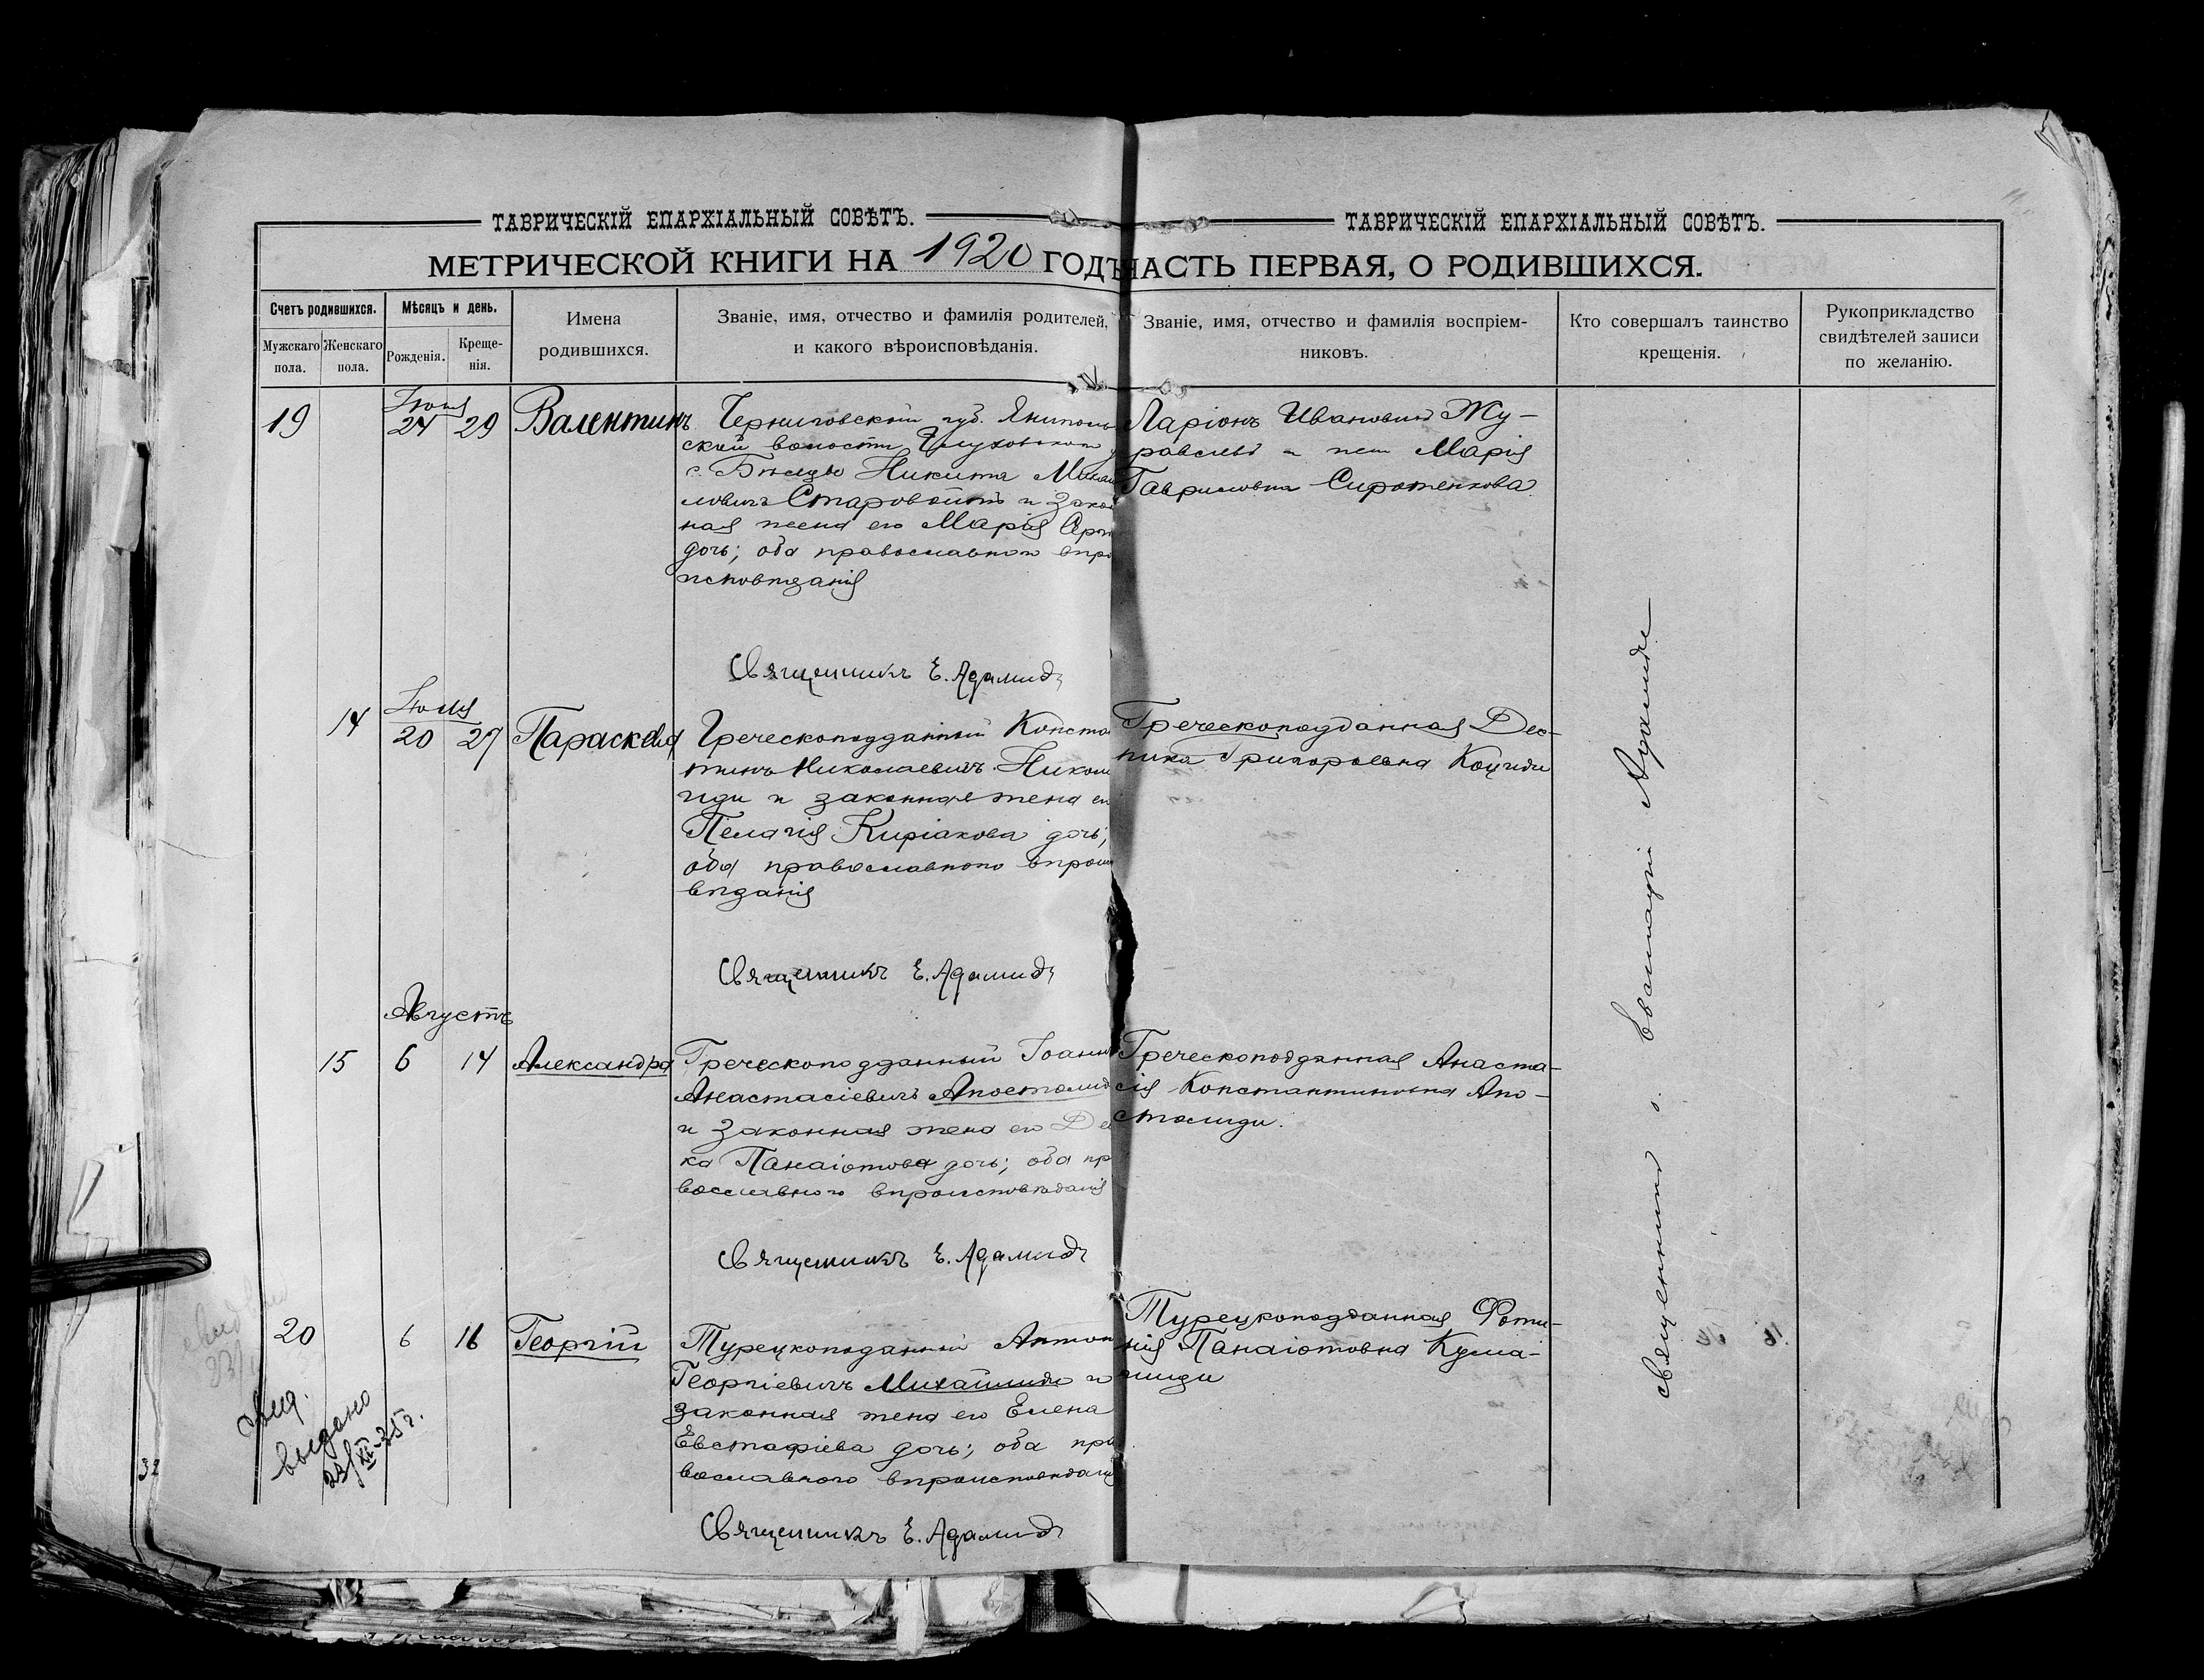 ТАВРИЧЕСКІЙ ЕПАРХІАЛЬНЫЙ СОВѢТЪ.
ТАВРИЧЕСКІЙ ЕПАРХІАЛЬНЫЙ СОВѢТЪ.
МЕТРИЧЕСКОЙ КНИГИ НА 1920 ГОДЪ
ЧАСТЬ ПЕРВАЯ, О РОДИВШИХСЯ.
Счетъ родившихся.
Мужскаго пола.
Женскаго пола.
Мѣсяцъ и день.
Рожденія.
Креще-
нія.
Имена
родившихся.
Званіе, имя, отчество и фамилія родителей,
и какого вѣроисповѣданія.
Званіе, имя, отчество и фамилія воспріем-
никовъ.
Кто совершалъ таинство
крещенія.
Рукоприкладство
свидѣтелей записи
по желанію.
19
24 29 Валентинъ
Черниговской губ.
ской волости Глуховского у
с. Никита Михаи
ловичъ Старовойтъ и закон
ная жена его Марія
дочь; оба православного вѣро
исповѣданія
Ларіонъ Ивановичъ Жу-
равлевъ и Марія
Гавриловна Сиротенкова
Священникъ Е. Адамиди
14
Іюль
20 27 Параскева
Греческоподданный Конста
тинъ Николаевичъ Никола
иди и законная жена ег
Пелагія Киріакова дочь;
оба православного вѣроис
вѣданія
Греческоподданная Дес-
пина Григорьевна
Священникъ Е. Адамиди
Августъ
15 6 14 Александра
Греческоподданный Іоаннъ
Анастасіевичъ Апостолид
и законная жена его Де
ка Панаіотова дочь; оба пр
вославного вѣроисповѣданія
Греческоподданная Анаста-
сія Константиновна Апо-
столиди.
Священникъ Е. Адамиди
20 6 16 Георгій
Турецкоподданный Антон
Георгіевичъ Михайлиди и
законная жена его Елена
Евстафіева дочь; оба пра
вославного вѣроисповѣданія
Турецкоподданная Фоти-
нія Панаіотовна
Священникъ Е. Адамиди
Священникъ о. Евлампій Адамиди
выдано
23/XI-35 г.
32